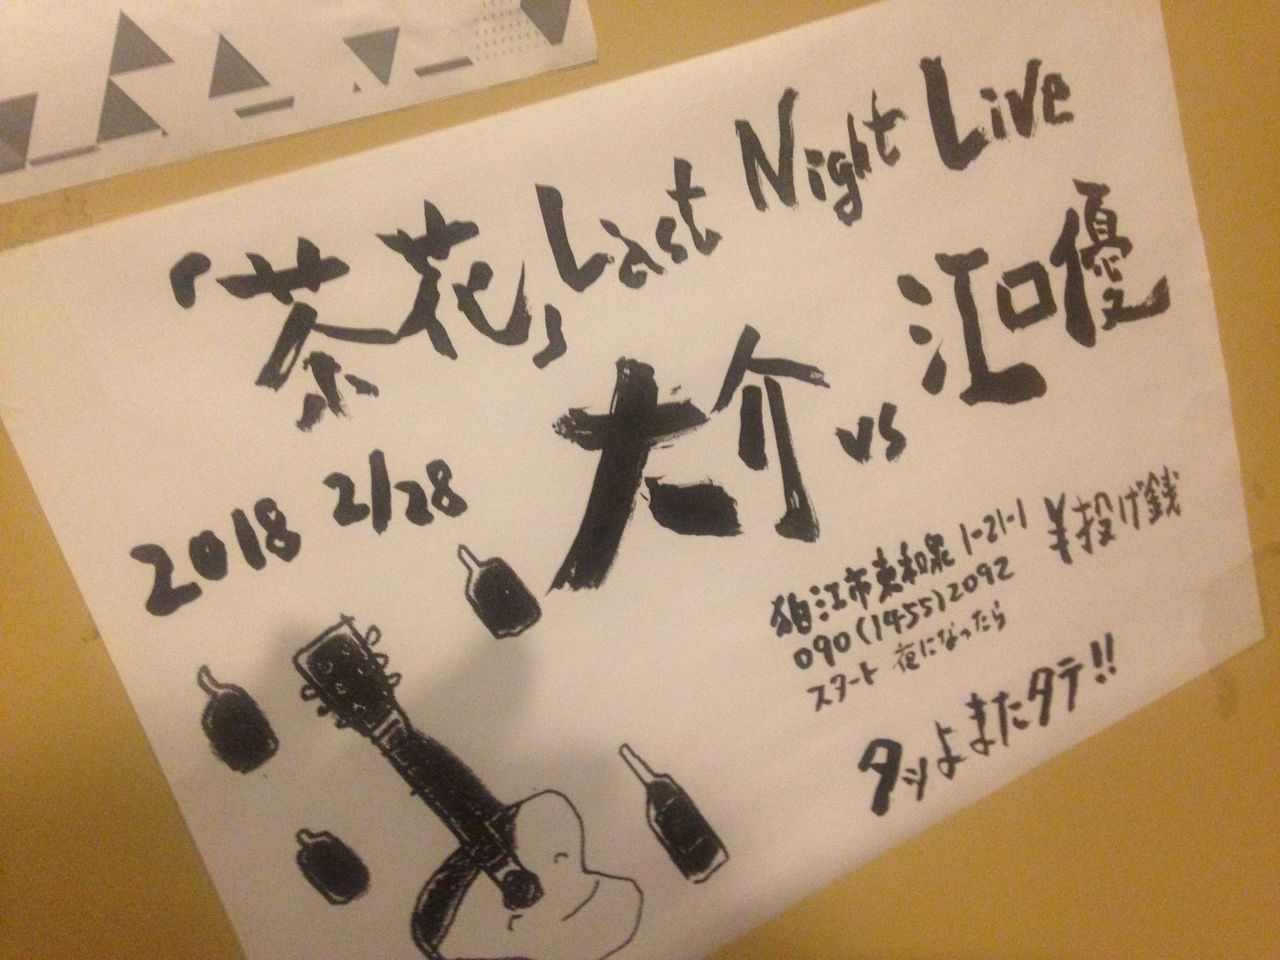 「茶花」Last Night Live
大介 vs 江口優
2018 2/28
¥投げ銭
狛江市東和泉 1-21-1
090(1455)2092
スタート 夜になったら
タッよまたタテ!!